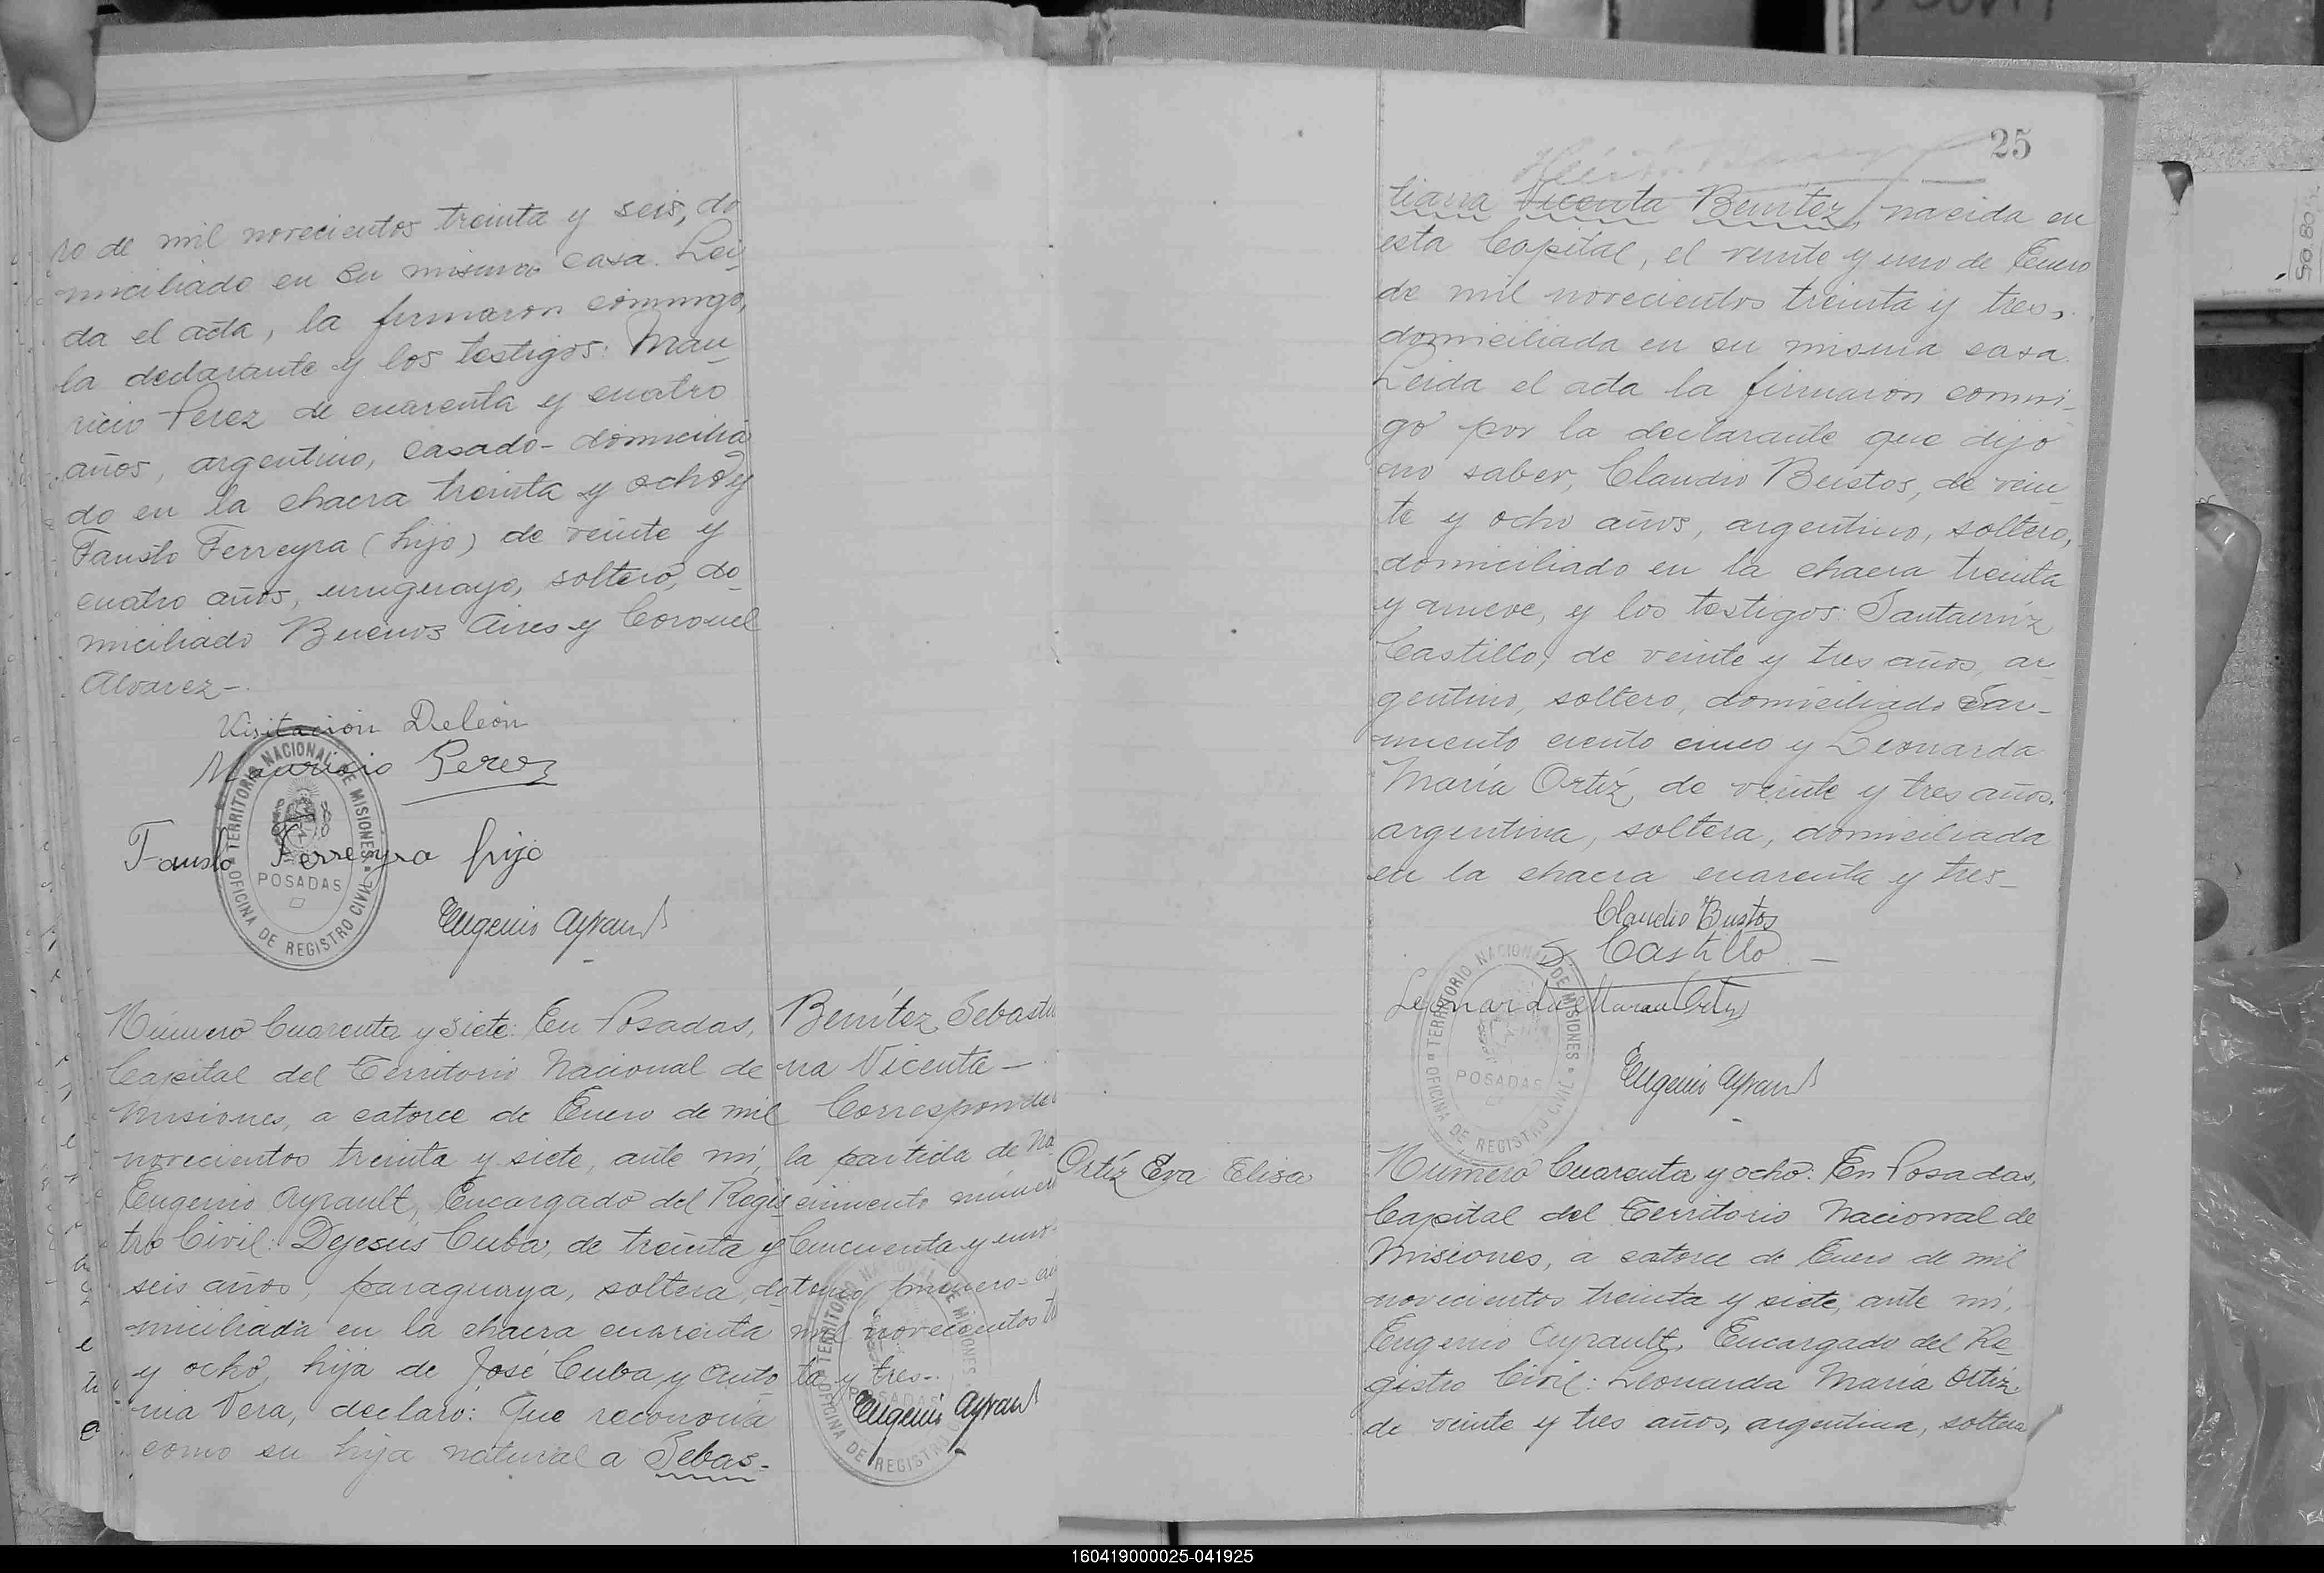 ro de mil novecientos treinta y seis, do
miciliado en su misma casa. Leí
da el acta, la firmaron conmigo,
la declarante y los testigos: Mau
ricio Perez de cuarenta y cuatro
años, argentino, casado- domicilia
do en la chacra treinta y ocho y
Fausto Ferreyra (hijo) de veinte y
cuatro años, uruguayo, soltero, do
miciliado Buenos Aires y Coronel
Alvarez-.
Visitación Deleón
Mauricio Perez
Fausto Ferreyra hijo
TERRITORIO NACIONAL DE MISIONES
POSADAS
OFICINA DE REGISTRO CIVIL
Eugenio Ayrault
Número Cuarenta y siete: En Posadas,
Capital del Territorio Nacional de
Misiones, a catorce de Enero de mil
novecientos treinta y siete, ante mí,
Eugenio Ayrault, Encargado del Regis
tro Civil: Dejesús Cuba, de treinta y
seis años, paraguaya, soltera, do
miciliada en la chacra cuarenta
y ocho, hija de José Cuba y Anto
nia Vera, declaró: Que reconocía
como su hija natural a Sebas-
Benítez, Sebastia
na Vicenta-
Corresponde
la partida de na
cimiento número
Cincuenta y uno
tomo primero-
mil novecientos
ta y tres-.
TERRITORIO NACIONAL DE MISIONES
POSADAS
OFICINA DE REGISTRO CIVIL
Eugenio Ayrault
25
tiana Vicenta Benítez, nacida en
esta Capital, el veinte y uno de Enero
de mil novecientos treinta y tres,
domiciliada en su misma casa.
Leída el acta la firmaron conmi-
go por la declarante que dijo
no saber, Claudio Bustos, de vein
te y ocho años, argentino, soltero,
domiciliado en la chacra treinta
y nueve, y los testigos: Santacruz
Castillo, de veinte y tres años, ar
gentino, soltero, domiciliado Sar-
miento ciento cinco y Leonarda
María Ortíz, de veinte y tres años,
argentina, soltera, domiciliada
en la chacra cuarenta y tres-
Claudio Bustos
S. Castillo
Leonarda Maria Ortiz
TERRITORIO NACIONAL DE MISIONES
POSADAS
OFICINA DE REGISTRO CIVIL
Eugenio Ayrault
Ortíz Eva Elisa
Número Cuarenta y ocho: En Posadas,
Capital del Territorio Nacional de
Misiones, a catorce de Enero de mil
novecientos treinta y siete, ante mí,
Eugenio Ayrault, Encargado del Re-
gistro Civil: Leonarda María Ortíz,
de veinte y tres años, argentina, soltera
160419000025-041925